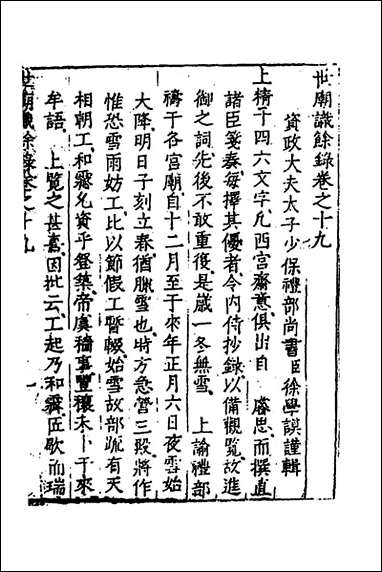 世廟識餘錄卷之十九
資政大夫太子少保禮部尚書臣徐學謨謹輯
上精于四六文字凡西宮齋意俱出自　睿思而撰直
諸臣箋奏每擇其優者令內侍抄錄以備觀覧故進
御之詞先後不敢重復是歲一冬無雪　上諭禮部
禱于各宮廟自十二月至于來年正月六日夜雪始
大降明日子刻立春猶臘雪也時方急營三殿將作
惟恐雪雨妨工比以節假工暫輟始雪故部疏有天
相朝工和寢凡資乎登築帝賚穡事豐穰未卜于來
牟語　上覧之甚喜因批云工起乃和霽匠歇而瑞
世廟識餘錄卷之十九
一